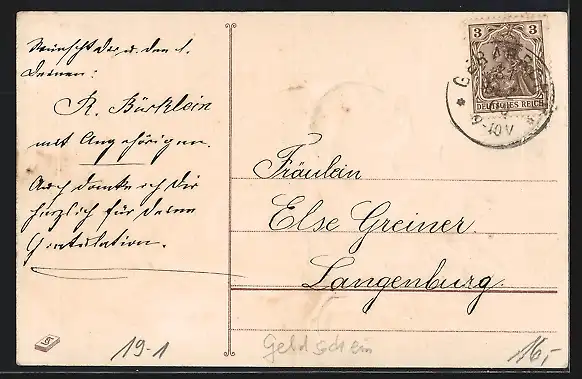 Wünscht Dir u. den l.
Deinen:
R. Bürklein
mit Angehörigen.
Auch danke ich Dir
herzlich für Deine
Gratulation.
3 3
DEUTSCHES REICH
Fräulein
Else Greiner.
Langenburg.
19-1
Geldschein
16,-